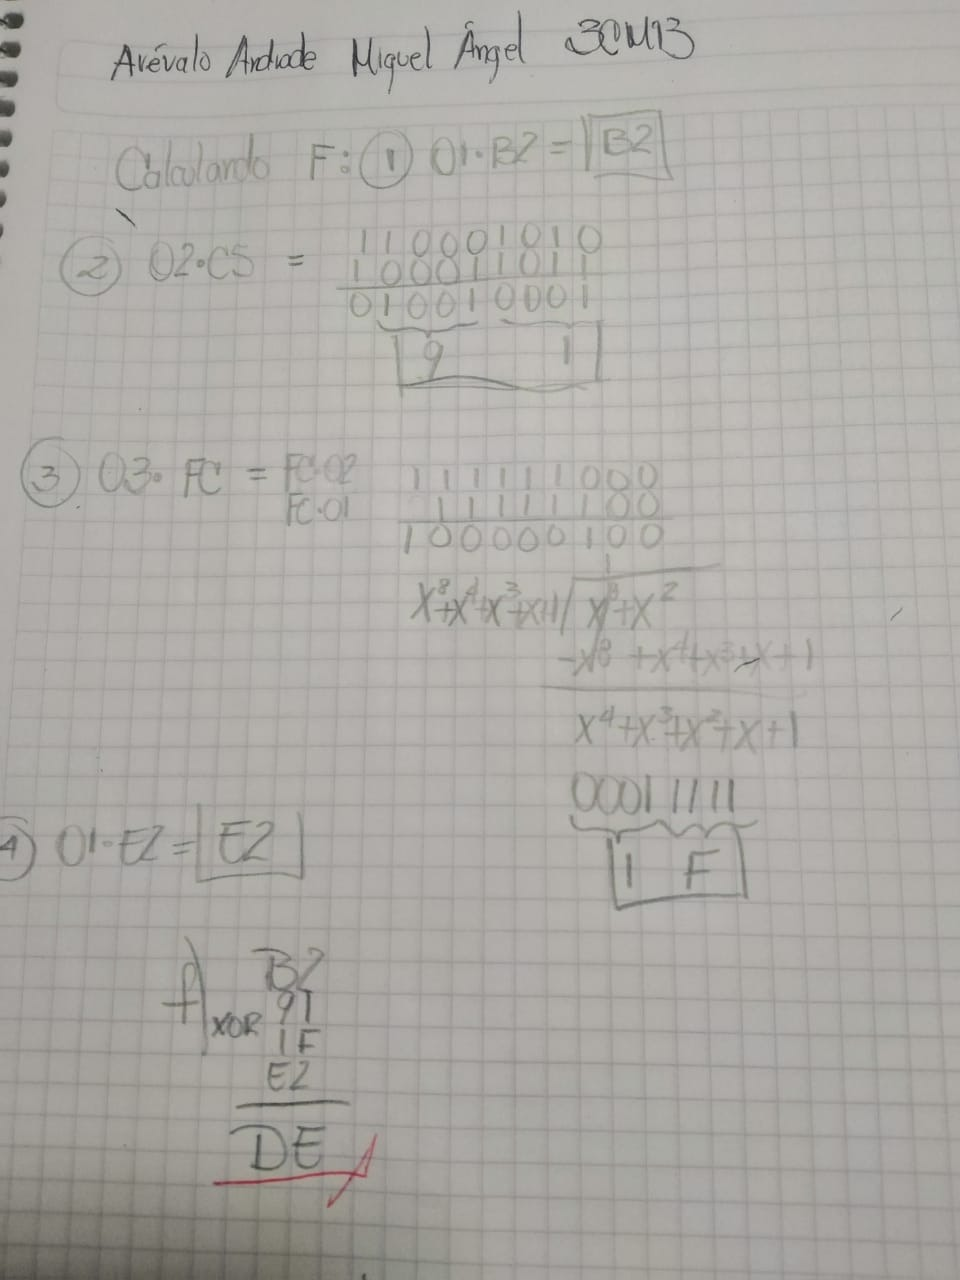 Arévalo Andrade Miguel Ángel 3CM13
Calculando F: ① 01·B2 = B2
② 02·C5 = 110001010
100011011
010010001
9 1
③ 03·FC = FC·02 111111000
FC·01 11111100
100000100
1
x⁸+x⁴+x³+x+1 / x⁸+x²
-x⁸ +x⁴+x³+x+1
x⁴+x³+x²+x+1
00011111
1 F
④ 01·E2 = E2
B2
XOR 91
1F
E2
DE